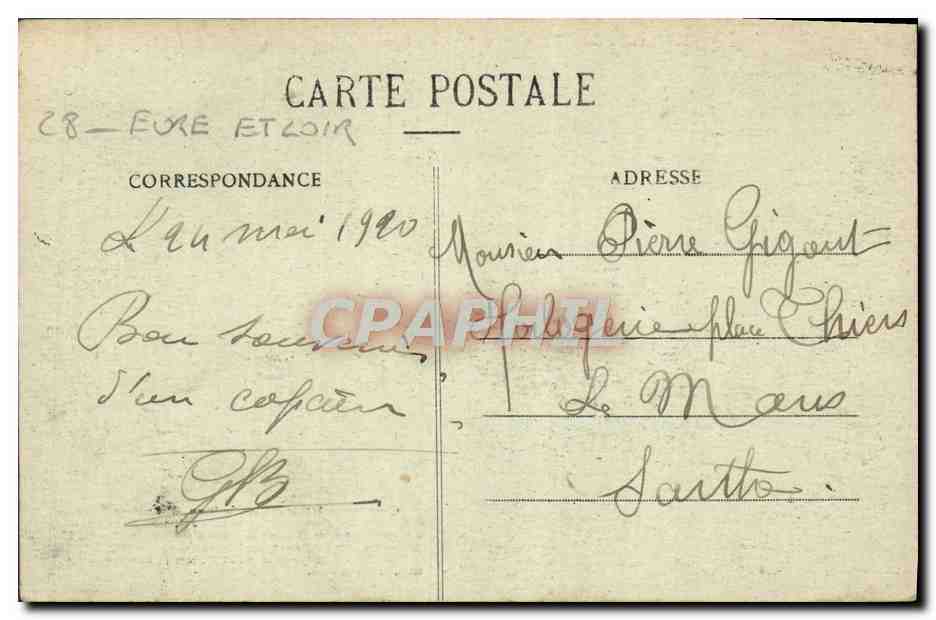 CARTE POSTALE
28 - EURE ET LOIR
CORRESPONDANCE
Le 24 mai 1920
Bon souvenir
d'un copain
GB
ADRESSE
Monsieur Pierre Gigout
Horlogerie place Thiers
Le Mans
Sarthe.
CPAPHIL